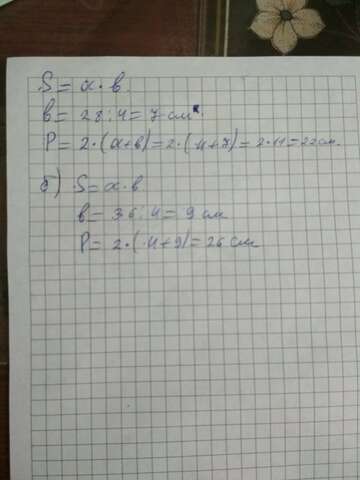 S = a · в.
в = 28 : 4 = 7 см.
P = 2 · (a + в) = 2 · (4 + 7) = 2 · 11 = 22 см.
б) S = a · в
в = 36 : 4 = 9 см
P = 2 · (4 + 9) = 26 см